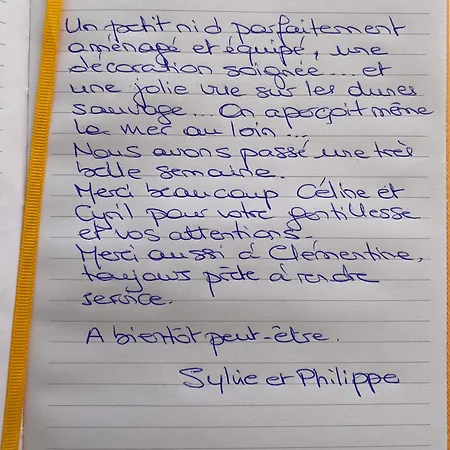 Un petit nid parfaitement
aménagé et équipé, une
décoration soignée... et
une jolie vue sur les dunes
sauvage... On aperçoit même
la mer au loin...
Nous avons passé une très
belle semaine.
Merci beaucoup Céline et
Cyril pour votre gentillesse
et vos attentions.
Merci aussi à Clémentine,
toujours prête à rendre
service.
A bientôt peut-être.
Sylvie et Philippe